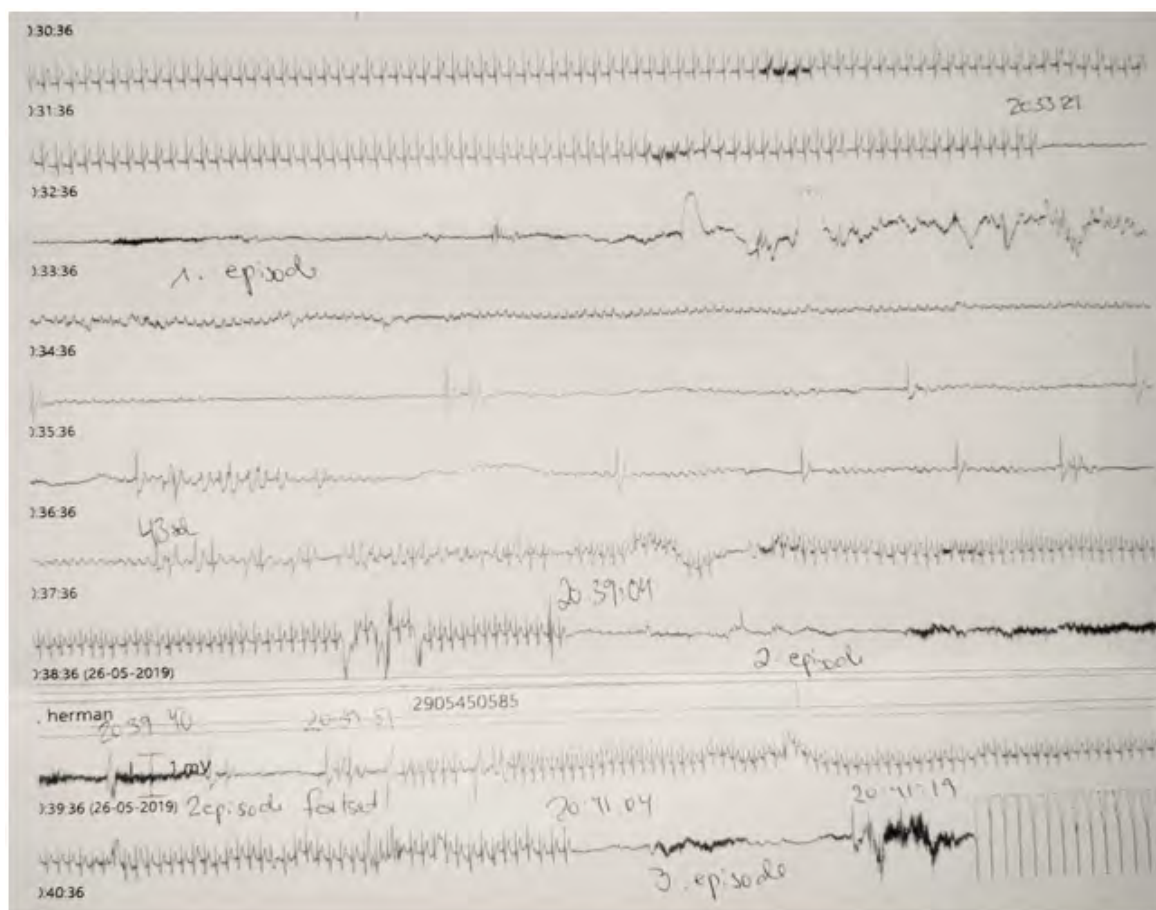 ):30:36
):31:36
20:33 21
):32:36
1. episode
):33:36
):34:36
):35:36
):36:36
43 sek
):37:36
20:39:04
2. episode
):38:36 (26-05-2019)
. herman
2905450585
20:39 40
20:39 51
1 mV
):39:36 (26-05-2019)
2 episode fortsat
20:41:04
20:41:19
3. episode
):40:36